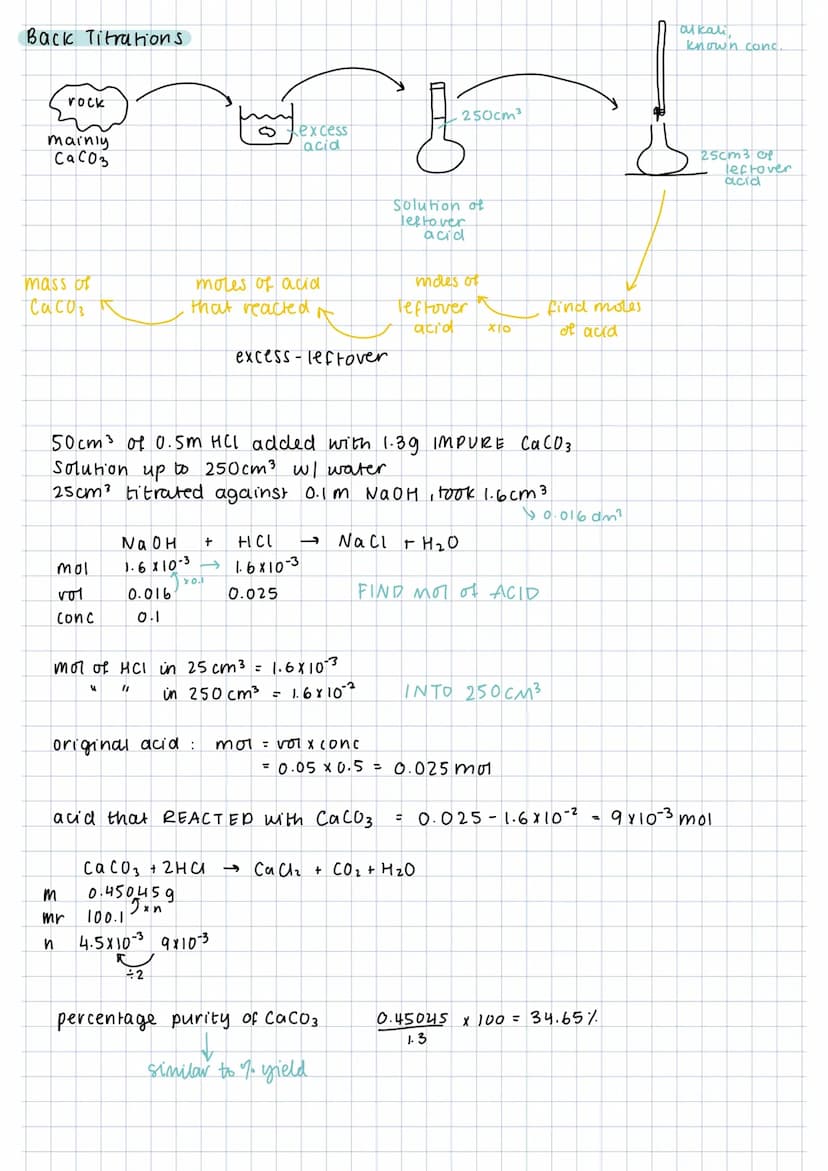 Back Titrations
alkali,
known conc.
rock
mainly
CaCO3
excess
acid
250cm³
25cm3 of
leftover
acid
solution of
leftover
acid
mass of
CaCO3
moles of acid
that reacted
moles of
leftover
acid
x10
find moles
of acid
excess - leftover
50cm³ of 0.5m HCl added with 1.3g IMPURE CaCO3
Solution up to 250cm³ w/ water
25cm³ titrated against 0.1m NaOH, took 1.6cm³
↳ 0.016 dm³
NaOH + HCl → NaCl + H2O
mol 1.6x10⁻³ → 1.6x10⁻³
x0.1
vol 0.016 0.025 FIND Mol of ACID
conc 0.1
mol of HCl in 25cm³ = 1.6x10⁻³
" " in 250cm³ = 1.6x10⁻² INTO 250CM³
original acid : mol = vol x conc
= 0.05 x 0.5 = 0.025mol
acid that REACTED with CaCO3 = 0.025 - 1.6x10⁻² = 9x10⁻³ mol
CaCO3 + 2HCl → CaCl2 + CO2 + H2O
m 0.45045g
xn
mr 100.1
n 4.5x10⁻³ 9x10⁻³
÷2
percentage purity of CaCO3 0.45045 x 100 = 34.65%
1.3
similar to % yield